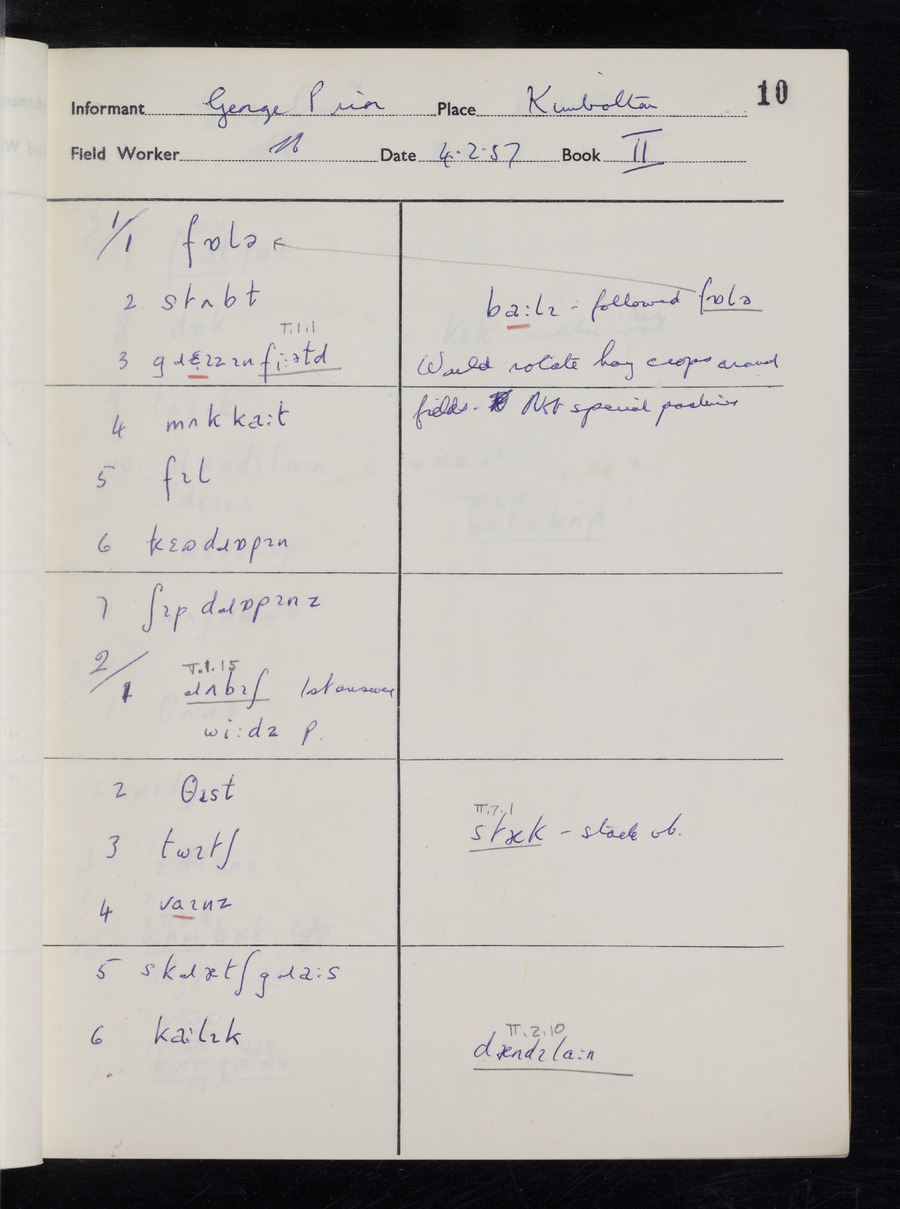 10
Informant George Prior Place Kimbolton
Field Worker Date 4·2·57 Book II
1/1 fɒlə
2 stʌbt
T.1.1
3 gɹɛɪzɪn fi:əɫd
4 mʌk ka:t
5 fɪl
6 kɛω dɹɒpɪn
7 ʃɪp dɹɒpɪnz
2/1 T.1.15
ɹʌbɪʃ 1st answer
wi:dz p.
2 θɪst
3 twɪtʃ
4 vaɪnz
5 skɹætʃgɹa:s
6 ka:lɪk
ba:lɪ - followed fɒlə
Would rotate hay crops around
fields. Not special pastures
II.7.1
stæk - stack ob.
II.2.10
dændɪla:n